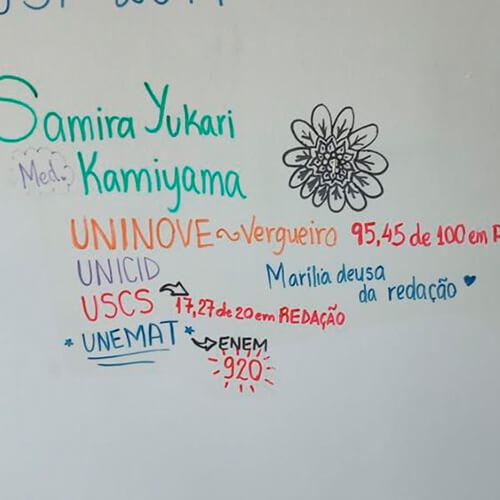 Samira Yukari
Med. Kamiyama
UNINOVE ~ Vergueiro 95,45 de 100 em
UNICID
Marilia deusa
da redação
USCS
17,27 de 20 em REDAÇÃO
* UNEMAT *
ENEM
920